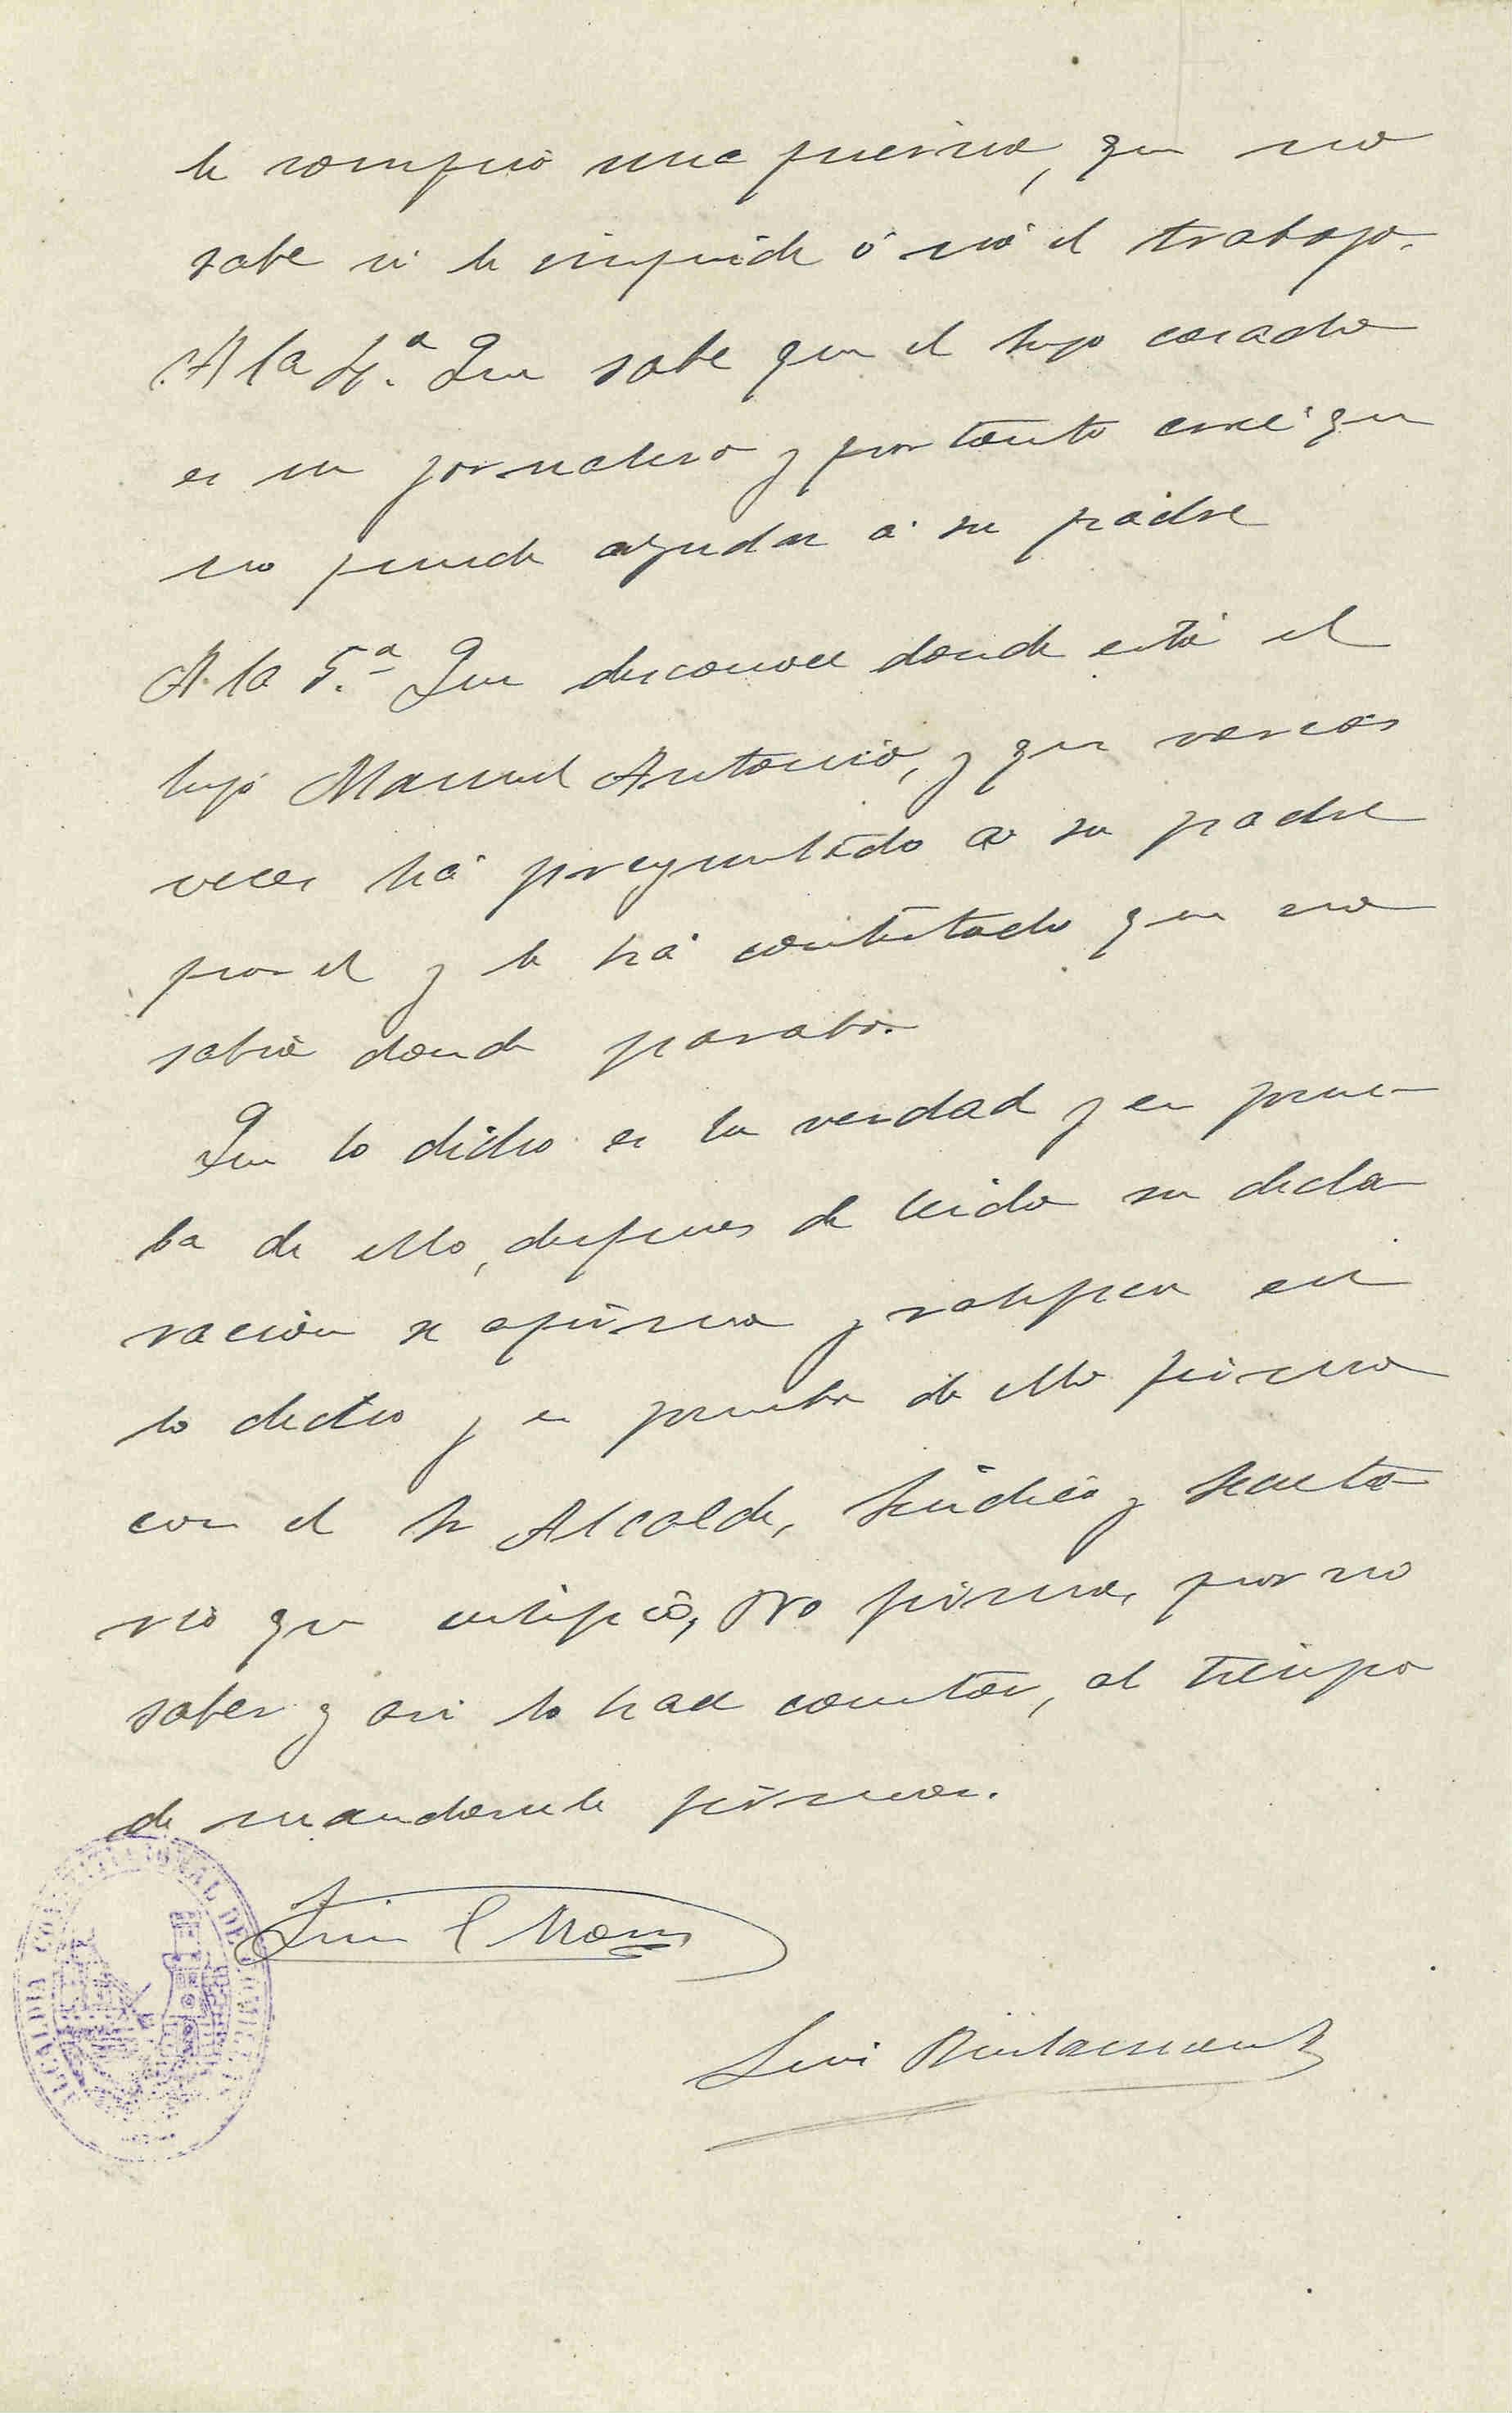 le rompió una pierna, que no
sabe si le impide ó nó el trabajo.
A la 4.ª Que sabe que el hijo casado
es un jornalero y por tanto creé que
no puede ayudar á su padre
A la 5.ª Que desconoce donde está el
hijo Manuel Antonio, y que varias
veces há preguntado a su padre
por el y le há contestado que no
sabia donde paraba.
Que lo dicho es la verdad y en prue-
ba de ello, despues de leida su decla
ración se afirma y ratifica en
lo dicho y en prueba de ello firma
con el Sr Alcalde, Síndico y Secreta
rio que certificó, No firma, por no
saber y asi lo hace constar, al tiempo
de mandarle firmar.
Luis
ALCALDIA CONSTITUCIONAL DE